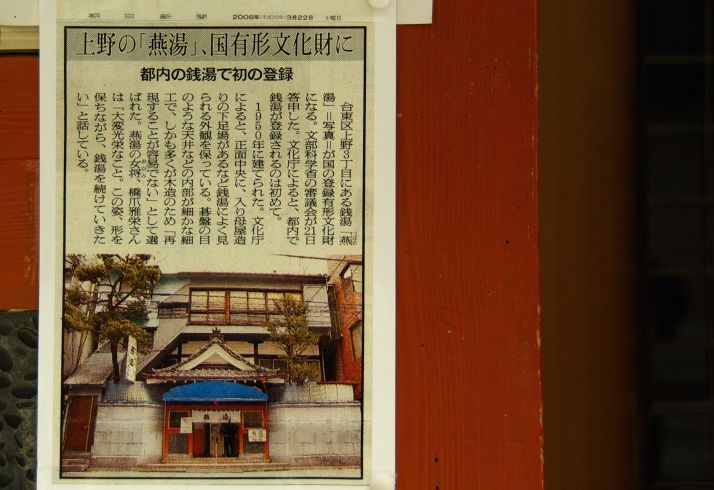 朝日新聞 2008年(平成20年)3月22日 土曜日
上野の「燕湯」、国有形文化財に
都内の銭湯で初の登録
台東区上野3丁目にある銭湯「燕
湯」=写真=が国の登録有形文化財
になる。文部科学省の審議会が21日
答申した。文化庁によると、都内で
銭湯が登録されるのは初めて。
1950年に建てられた。文化庁
によると、正面中央に、入り母屋造
りの下足場があるなど銭湯によく見
られる外観を保っている。碁盤の目
のような天井などの内部が細かな細
工で、しかも多くが木造のため「再
現することが容易でない」として選
ばれた。燕湯の女将、橋爪雅栄さん
は「大変光栄なこと。この姿、形を
保ちながら、銭湯を続けていきた
い」と話している。
燕湯